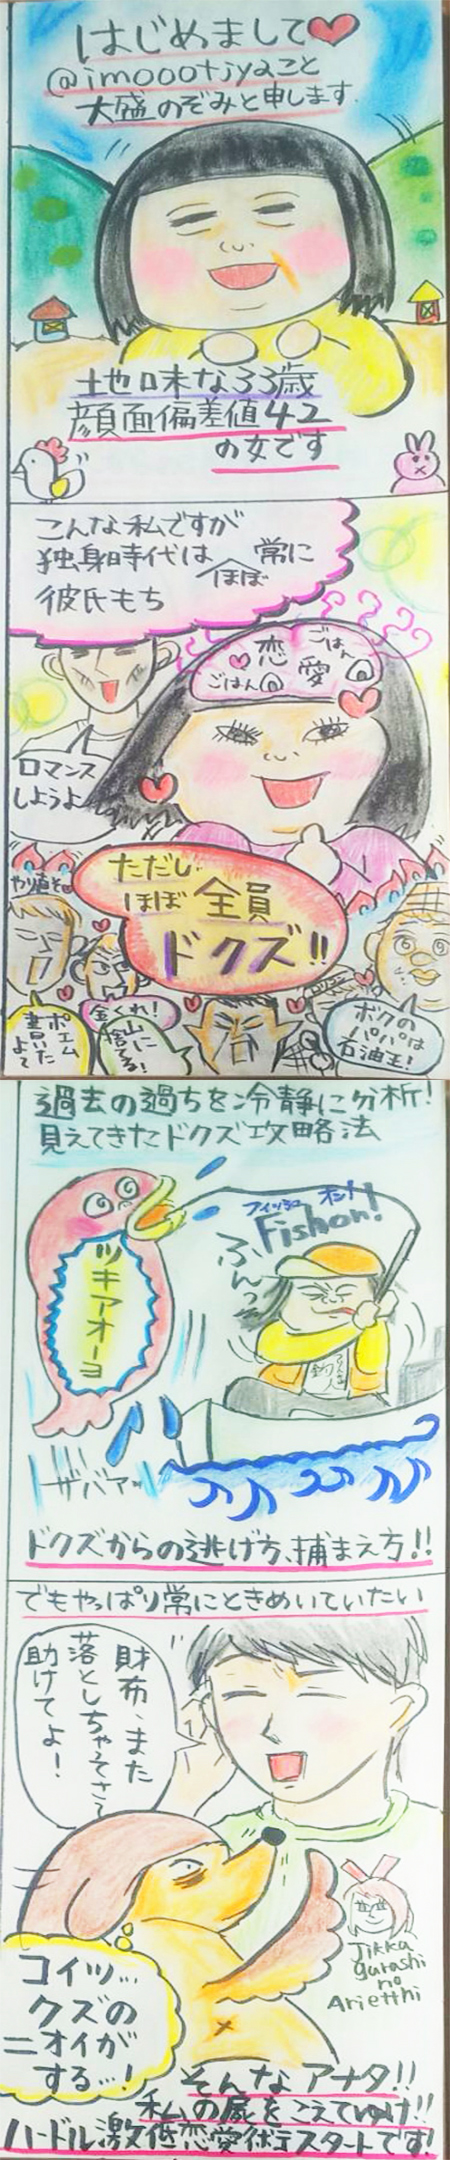 はじめまして
@imoootiyaこと
大盛のぞみと申します.
地味な33歳
顔面偏差値42
の女です
こんな私ですが
独身時代はほぼ常に
彼氏もち
恋愛
ごはん
ごはん
ロマンス
しようよ
ただし
ほぼ全員
ドクズ!!
やり直そ
ポエム
書いた
よ
金くれ!
山に
捨てる!
ボクの
パパは
石油王!
過去の過ちを冷静に分析!
見えてきたドクズ攻略法
ツキアオーヨ
フィッシュ オン!
Fishon!
ふんっ
釣人
ザバアッ
ドクズからの逃げ方、捕まえ方!!
でもやっぱり常にときめいていたい
財布、また
落としちゃってさぁ
助けてよ!
Jikka
guroshi
no
Arietthi
コイツ…
クズの
ニオイが
する…!
そんなアナタ!!
私の屍をこえてゆけ!!
ハードル激低恋愛術スタートです!